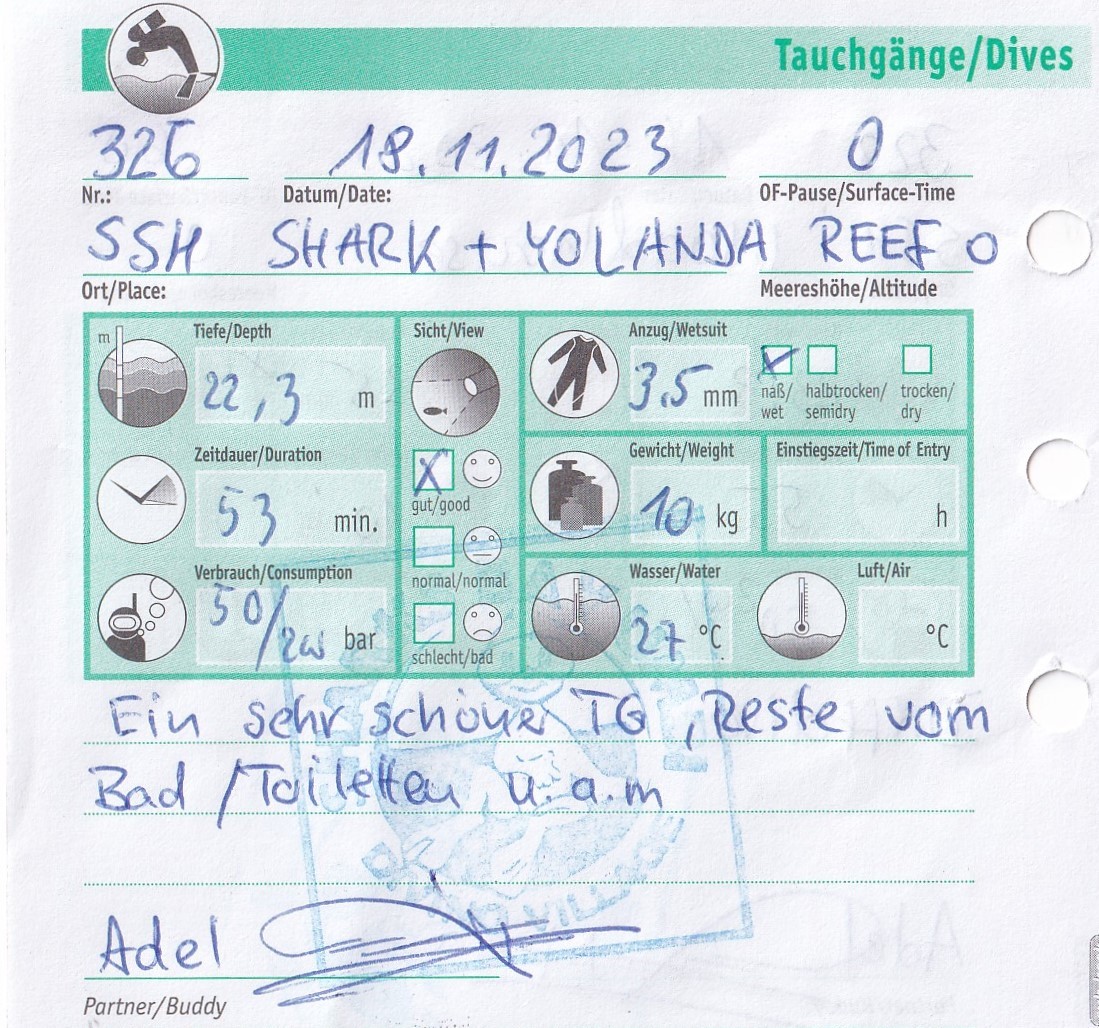 Tauchgänge/Dives
326 18.11.2023 0
Nr.: Datum/Date: OF-Pause/Surface-Time
SSH SHARK + YOLANDA REEF 0
Ort/Place: Meereshöhe/Altitude
m Tiefe/Depth Sicht/View Anzug/Wetsuit
22,3 m 3,5 mm naß/ halbtrocken/ trocken/
wet semidry dry
Zeitdauer/Duration Gewicht/Weight Einstiegszeit/Time of Entry
53 min. gut/good 10 kg h
normal/normal
Verbrauch/Consumption Wasser/Water Luft/Air
50/200 bar 27 °C °C
schlecht/bad
Ein sehr schöner TG, Reste vom
Bad /Toiletten u.a.m
VILLAGE
Adel
Partner/Buddy